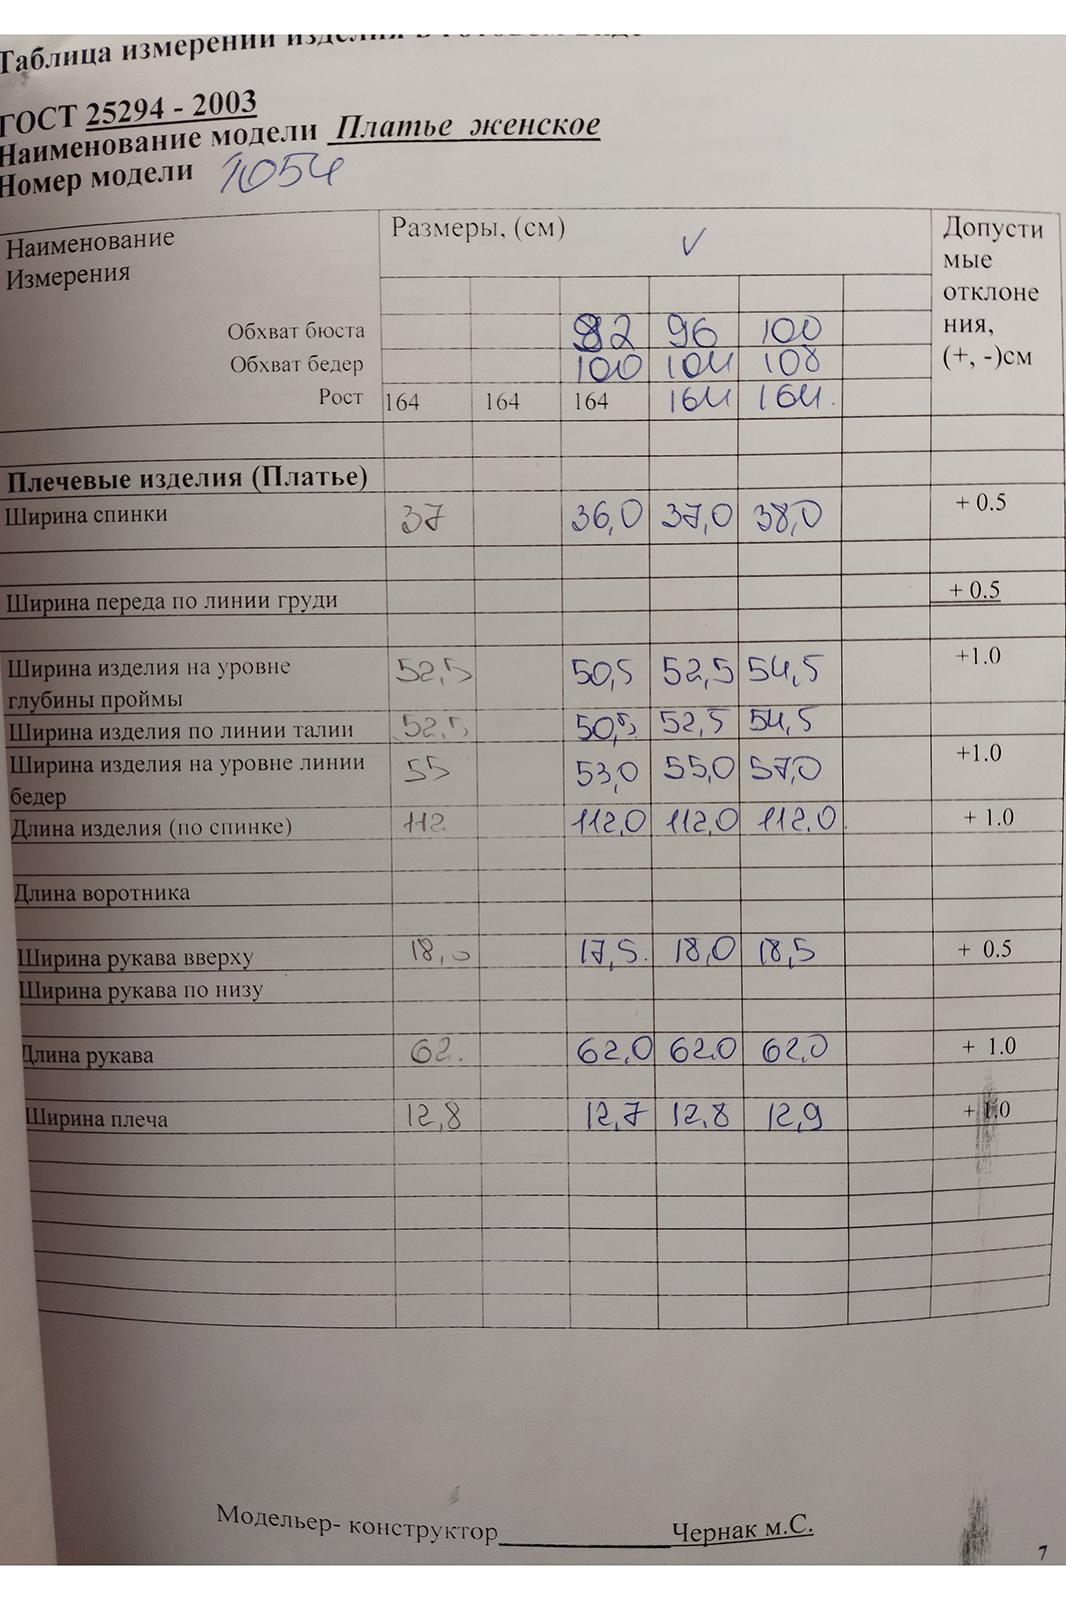 Таблица измерений изделия в готовом виде
ГОСТ 25294 - 2003
Наименование модели Платье женское
Номер модели 1054
Наименование Измерения Размеры, (см) ✓ Допусти мые отклоне ния, (+, -)см
Обхват бюста 92 96 100
Обхват бедер 100 104 108
Рост 164 164 164 164 164.
Плечевые изделия (Платье)
Ширина спинки 37 36,0 37,0 38,0 + 0.5
Ширина переда по линии груди + 0.5
Ширина изделия на уровне глубины проймы 52,5 50,5 52,5 54,5 +1.0
Ширина изделия по линии талии 52,5 50,5 52,5 54,5
Ширина изделия на уровне линии бедер 55 53,0 55,0 57,0 +1.0
Длина изделия (по спинке) 112 112,0 112,0 112.0 + 1.0
Длина воротника
Ширина рукава вверху 18,0 17,5. 18,0 18,5 + 0.5
Ширина рукава по низу
Длина рукава 62. 62,0 62.0 62,0 + 1.0
Ширина плеча 12,8 12,7 12,8 12,9 + 1.0
Модельер- конструктор____________Чернак м.С.
7